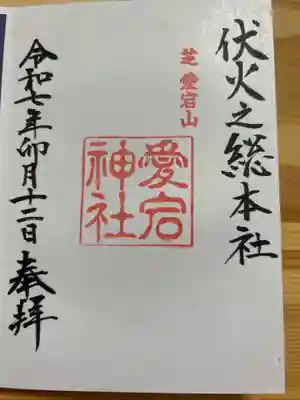 伏火之総本社
芝愛宕山
愛宕神社
令和七年卯月十二日奉拝